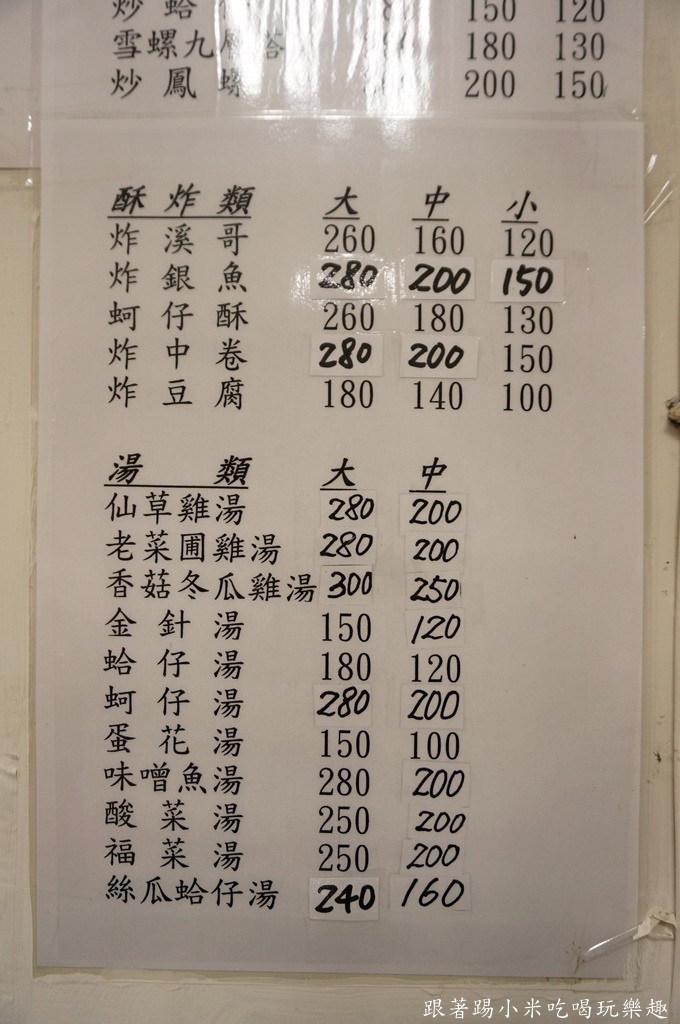 炒 蛤 150 120
雪螺九層塔 180 130
炒 鳳 螺 200 150
酥 炸 類 大 中 小
炸 溪 哥 260 160 120
炸 銀 魚 280 200 150
蚵 仔 酥 260 180 130
炸 中 卷 280 200 150
炸 豆 腐 180 140 100
湯 類 大 中
仙草雞湯 280 200
老菜圃雞湯 280 200
香菇冬瓜雞湯 300 250
金 針 湯 150 120
蛤 仔 湯 180 120
蚵 仔 湯 280 200
蛋 花 湯 150 100
味噌魚湯 280 200
酸 菜 湯 250 200
福 菜 湯 250 200
絲瓜蛤仔湯 240 160
跟著踢小米吃喝玩樂趣